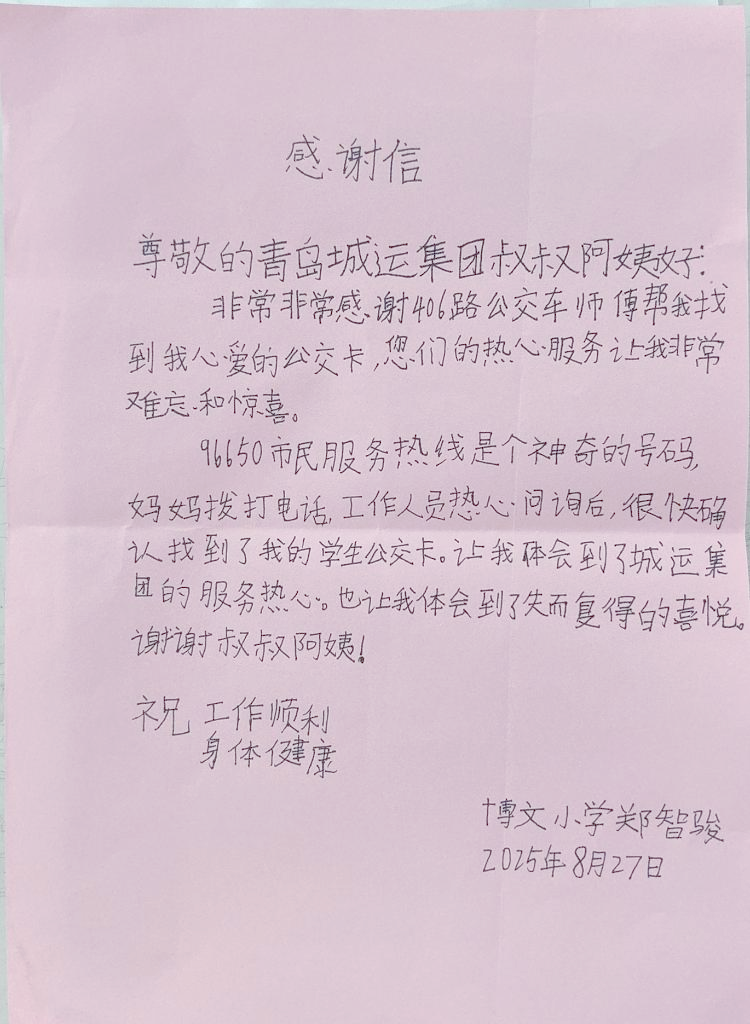 感谢信
尊敬的青岛城运集团叔叔阿姨好:
非常非常感谢406路公交车师傅帮我找
到我心爱的公交卡,您们的热心服务让我非常
难忘和惊喜。
96650市民服务热线是个神奇的号码,
妈妈拨打电话,工作人员热心问询后,很快确
认找到了我的学生公交卡。让我体会到了城运集
团的服务热心。也让我体会到了失而复得的喜悦。
谢谢叔叔阿姨!
祝 工作顺利
身体健康
博文小学郑智骏
2025年8月27日